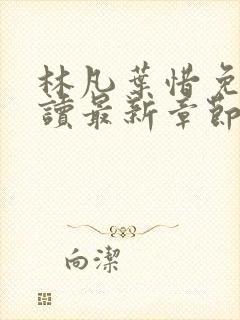 林凡葉惜免
讀最新章節
向潔